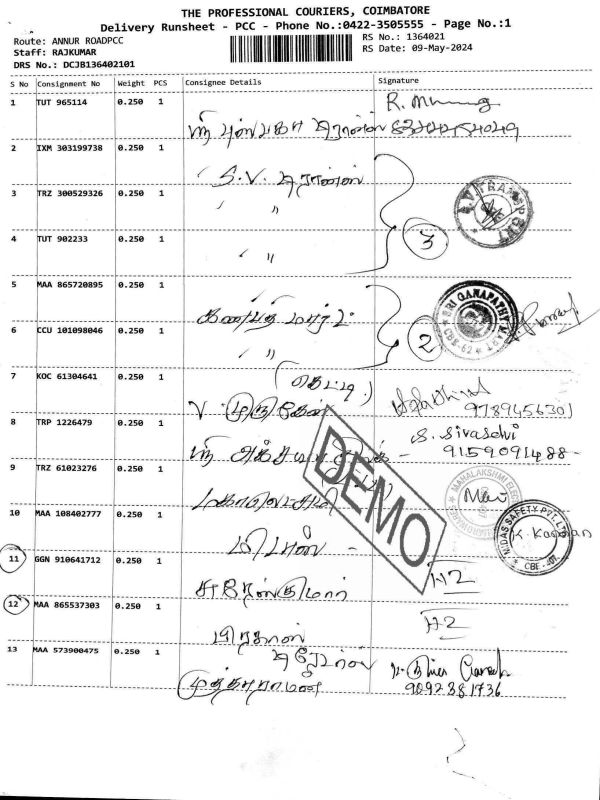 THE PROFESSIONAL COURIERS, COIMBATORE
Delivery Runsheet - PCC - Phone No.:0422-3505555 - Page No.:1
Route: ANNUR ROADPCC
Staff: RAJKUMAR
DRS No.: DCJB136402101
RS No.: 1364021
RS Date: 09-May-2024
S No Consignment No Weight PCS Consignee Details Signature
1 TUT 965114 0.250 1
2 IXM 303199738 0.250 1
S.V. டிரான்ஸ்
3 TRZ 300529326 0.250 1 "
3
4 TUT 902233 0.250 1 "
5 MAA 865720895 0.250 1
கணபதி மார்ட்
SRI GANAPATHY MART
CBE-62
2
6 CCU 101098046 0.250 1 "
7 KOC 61304641 0.250 1
V. முருகேஸ்
9789456301
8 TRP 1226479 0.250 1
S. Sivaselvi
9159091488
9 TRZ 61023276 0.250 1
மகாலெட்சுமி
MAHALAKSHMI
10 MAA 108402777 0.250 1
மிடாஸ்
MIDAS SAFETY PVT. LTD
CBE
K. Kannan
DEMO
11 GGN 910641712 0.250 1
சுரேஸ்குமார்
H2
12 MAA 865537303 0.250 1
பிரகாஸ்
H2
13 MAA 573900475 0.250 1
டிரேடர்ஸ்
முத்துராமன்
9092881736